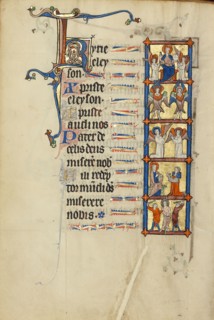 Kyrie
eley
son.
Xpriste
eleyson.
priste
audi nos
Pater de
celis deus
miserere nob
fili redẽp
tor mũdi ds
miserere
nobis.